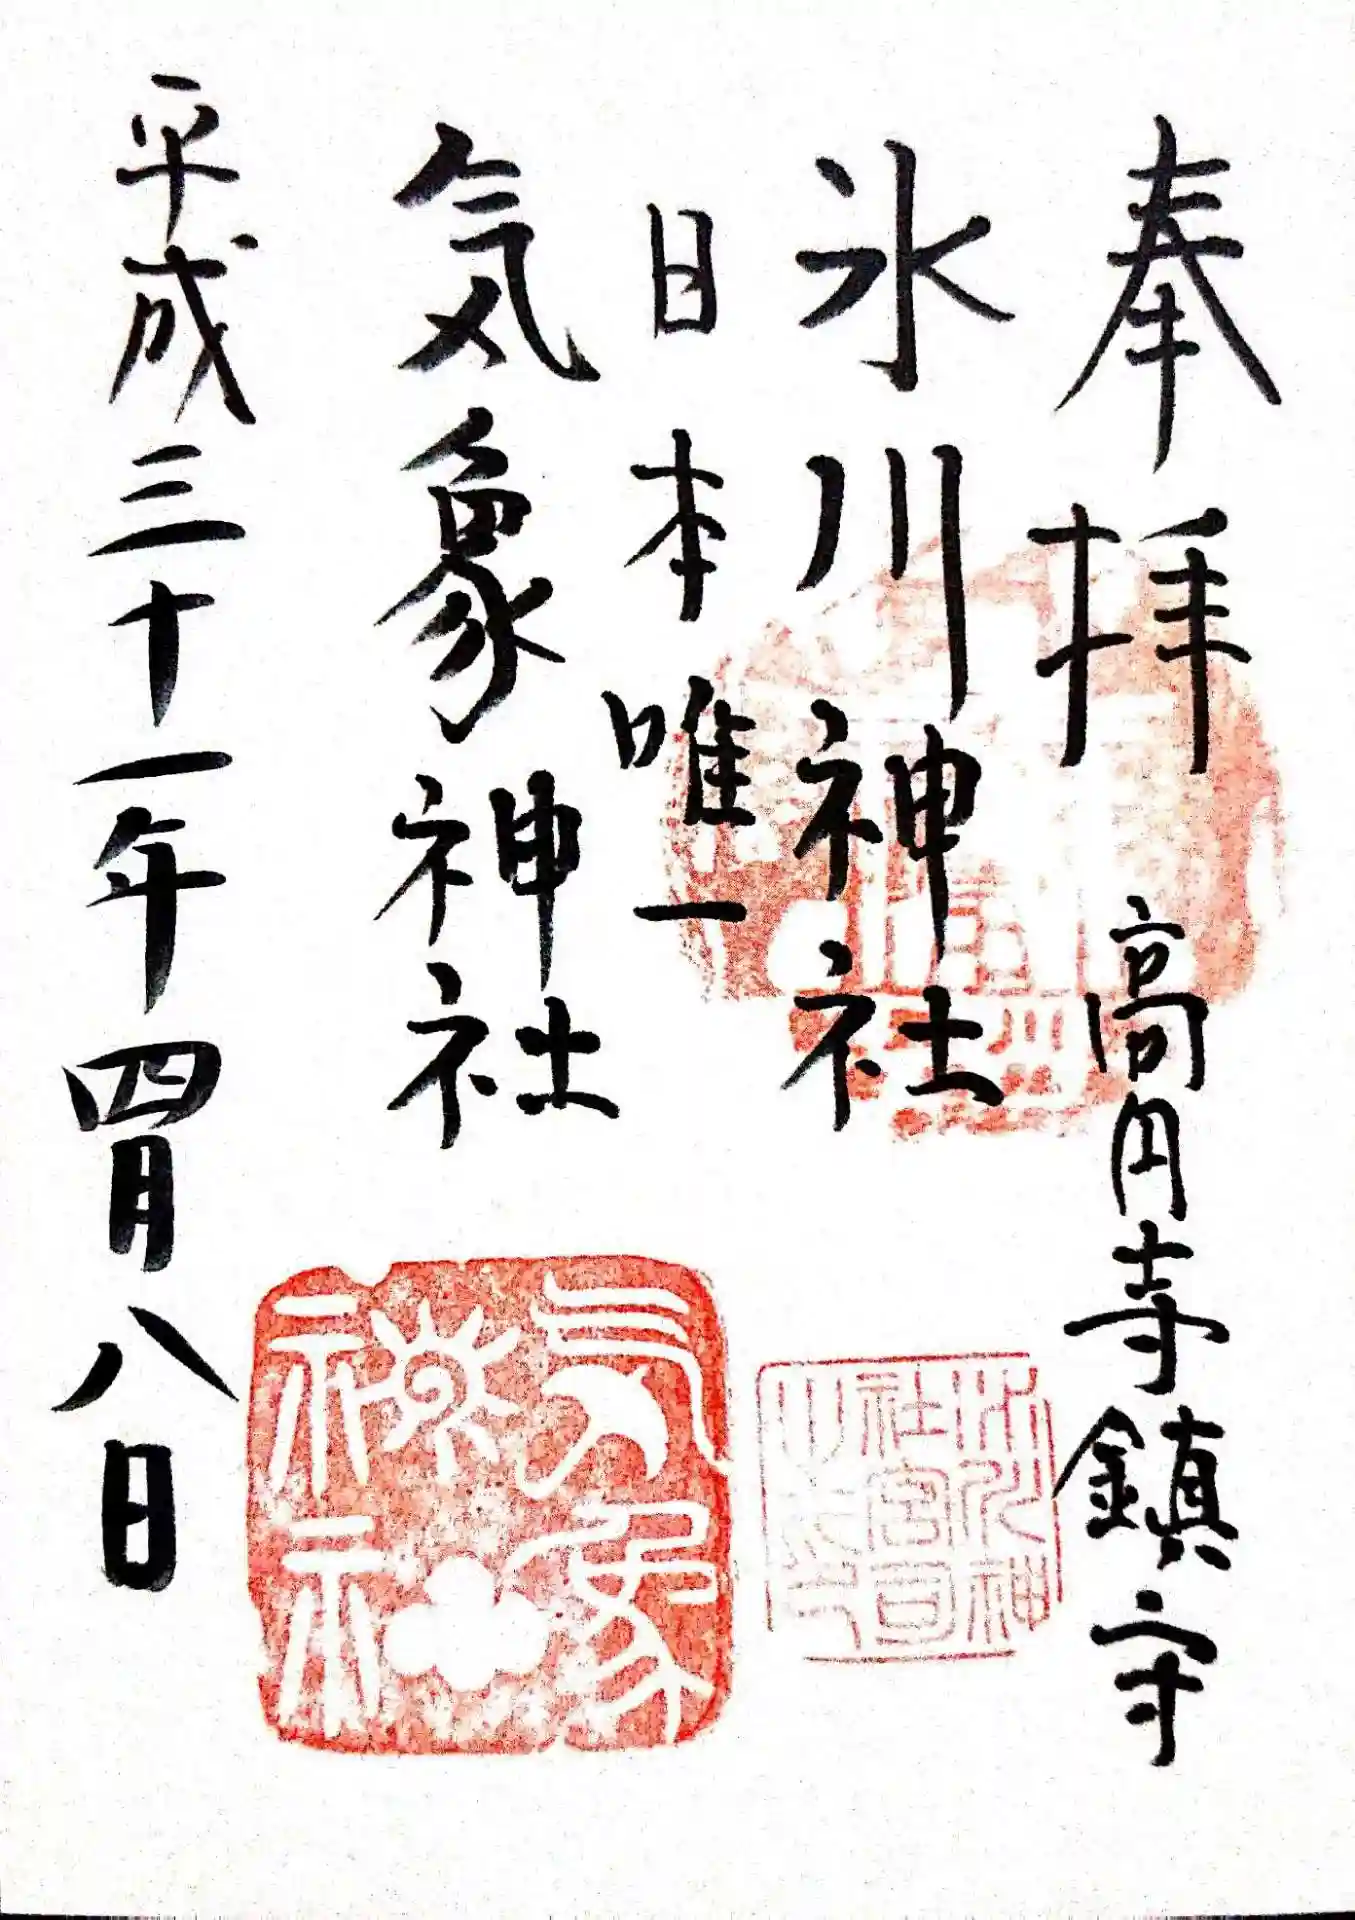 奉拝 高円寺鎮守
氷川神社
日本唯一
気象神社
平成三十一年四月八日
気象神社